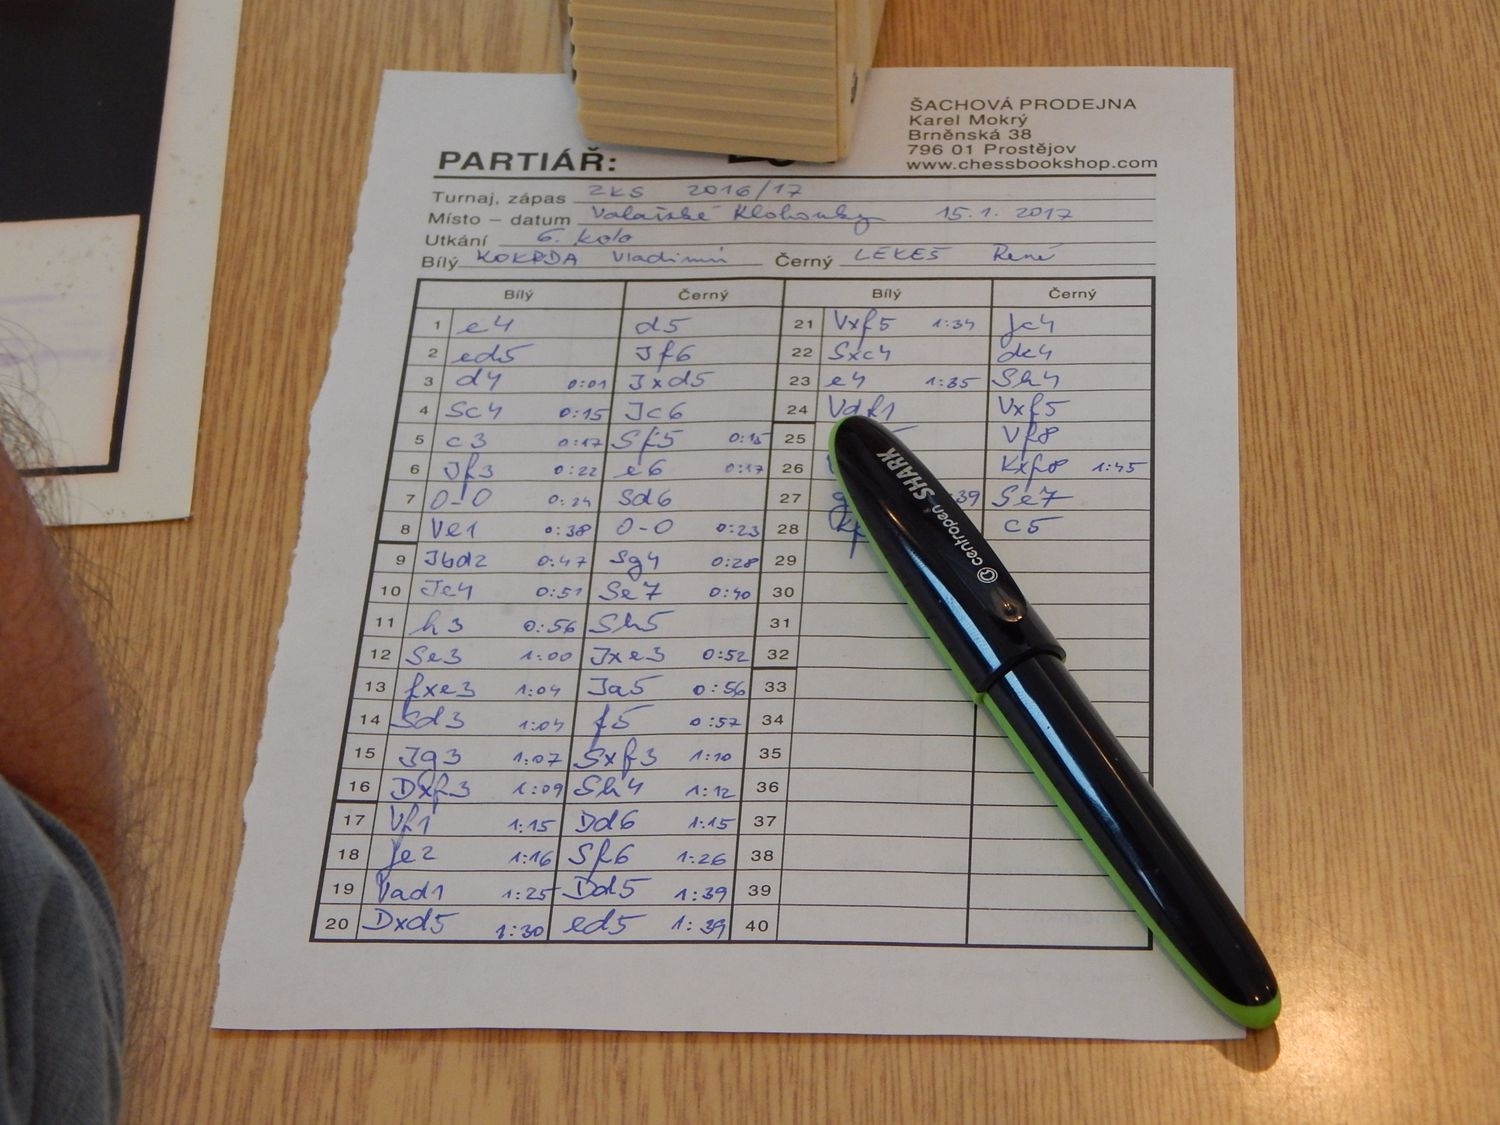 ŠACHOVÁ PRODEJNA
Karel Mokrý
Brněnská 38
796 01 Prostějov
www.chessbookshop.com
PARTIÁŘ:
Turnaj, zápas ZKS 2016/17
Místo – datum Valašské Klobouky 15.1. 2017
Utkání 6. kolo
Bílý KOKRDA Vladimír Černý LEKEŠ René
Bílý Černý Bílý Černý
1 e4 d5 21 Vxf5 1:34 Jc4
2 ed5 Jf6 22 Sxc4 dc4
3 d4 0:01 Jxd5 23 e4 1:35 Sh4
4 Sc4 0:15 Jc6 24 Vdf1 Vxf5
5 c3 0:17 Sf5 0:15 25 Vf8
6 Jf3 0:22 e6 0:17 26 Kxf8 1:45
7 0-0 0:24 Sd6 27 39 Se7
8 Ve1 0:38 0-0 0:23 28 c5
9 Jbd2 0:47 Sg4 0:28 29
10 Je4 0:51 Se7 0:40 30
11 h3 0:56 Sh5 31
12 Se3 1:00 Jxe3 0:52 32
13 fxe3 1:04 Ja5 0:56 33
14 Sd3 1:04 f5 0:57 34
15 Jg3 1:07 Sxf3 1:10 35
16 Dxf3 1:09 Sh4 1:12 36
17 Vf1 1:15 Dd6 1:15 37
18 Je2 1:16 Sf6 1:26 38
19 Vad1 1:25 Dd5 1:39 39
20 Dxd5 1:30 ed5 1:39 40
centropen SHARK